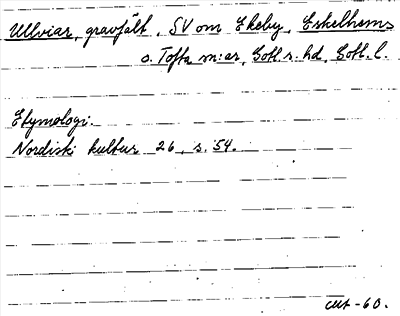 Ullviar, gravfält, SV om Ekeby, Eskelhems
o. Tofta m:ar, Gotl. s. hd, Gotl. l.
Etymologi.
Nordisk kultur 26, s. 54.
-60.